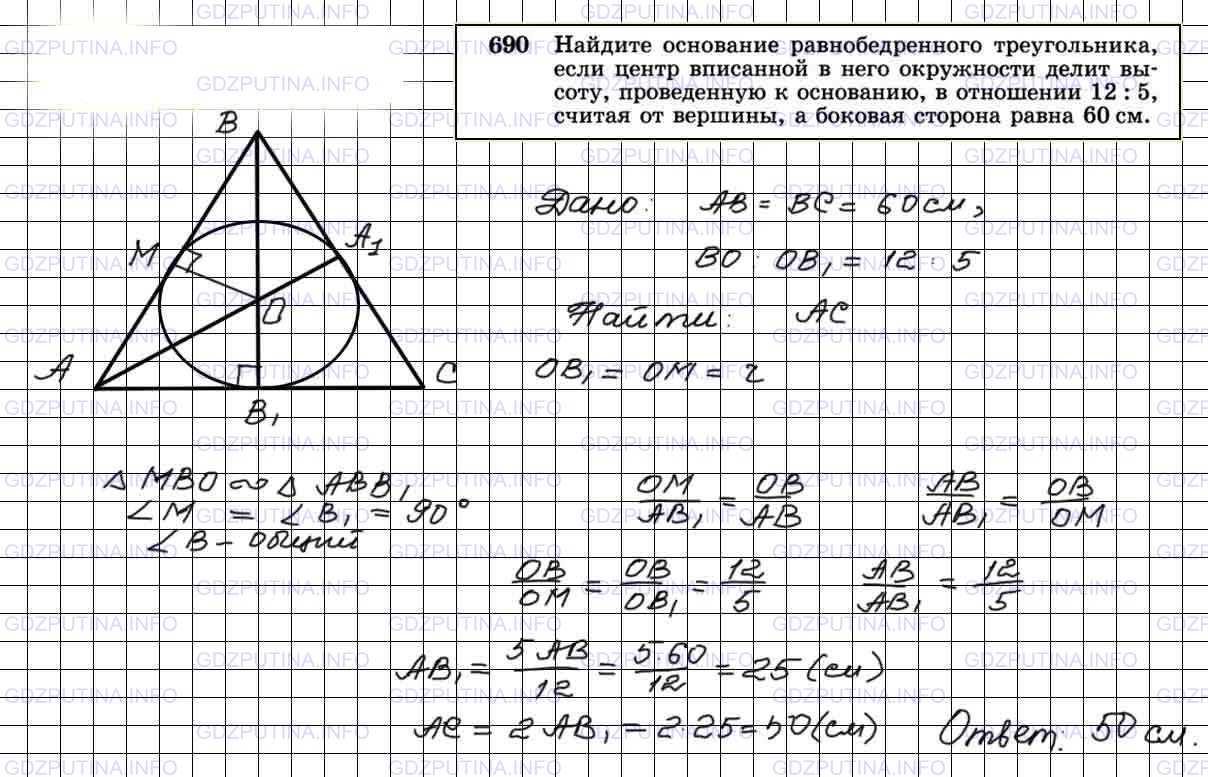 690 Найдите основание равнобедренного треугольника,
если центр вписанной в него окружности делит вы-
соту, проведенную к основанию, в отношении 12 : 5,
считая от вершины, а боковая сторона равна 60 см.
B
M
A₁
O
A
C
B₁
Дано: AB = BC = 60 см,
BO : OB₁ = 12 : 5
Найти: AC
OB₁ = OM = r
△ MBO ∾ △ ABB₁
∠M = ∠B₁ = 90°
∠B - общий
OM/AB₁ = OB/AB AB/AB₁ = OB/OM
OB/OM = OB/OB₁ = 12/5 AB/AB₁ = 12/5
AB₁ = 5 AB/12 = 5·60/12 = 25 (см)
AC = 2 AB₁ = 2·25 = 50 (см) Ответ. 50 см.
GDZPUTINA.INFO